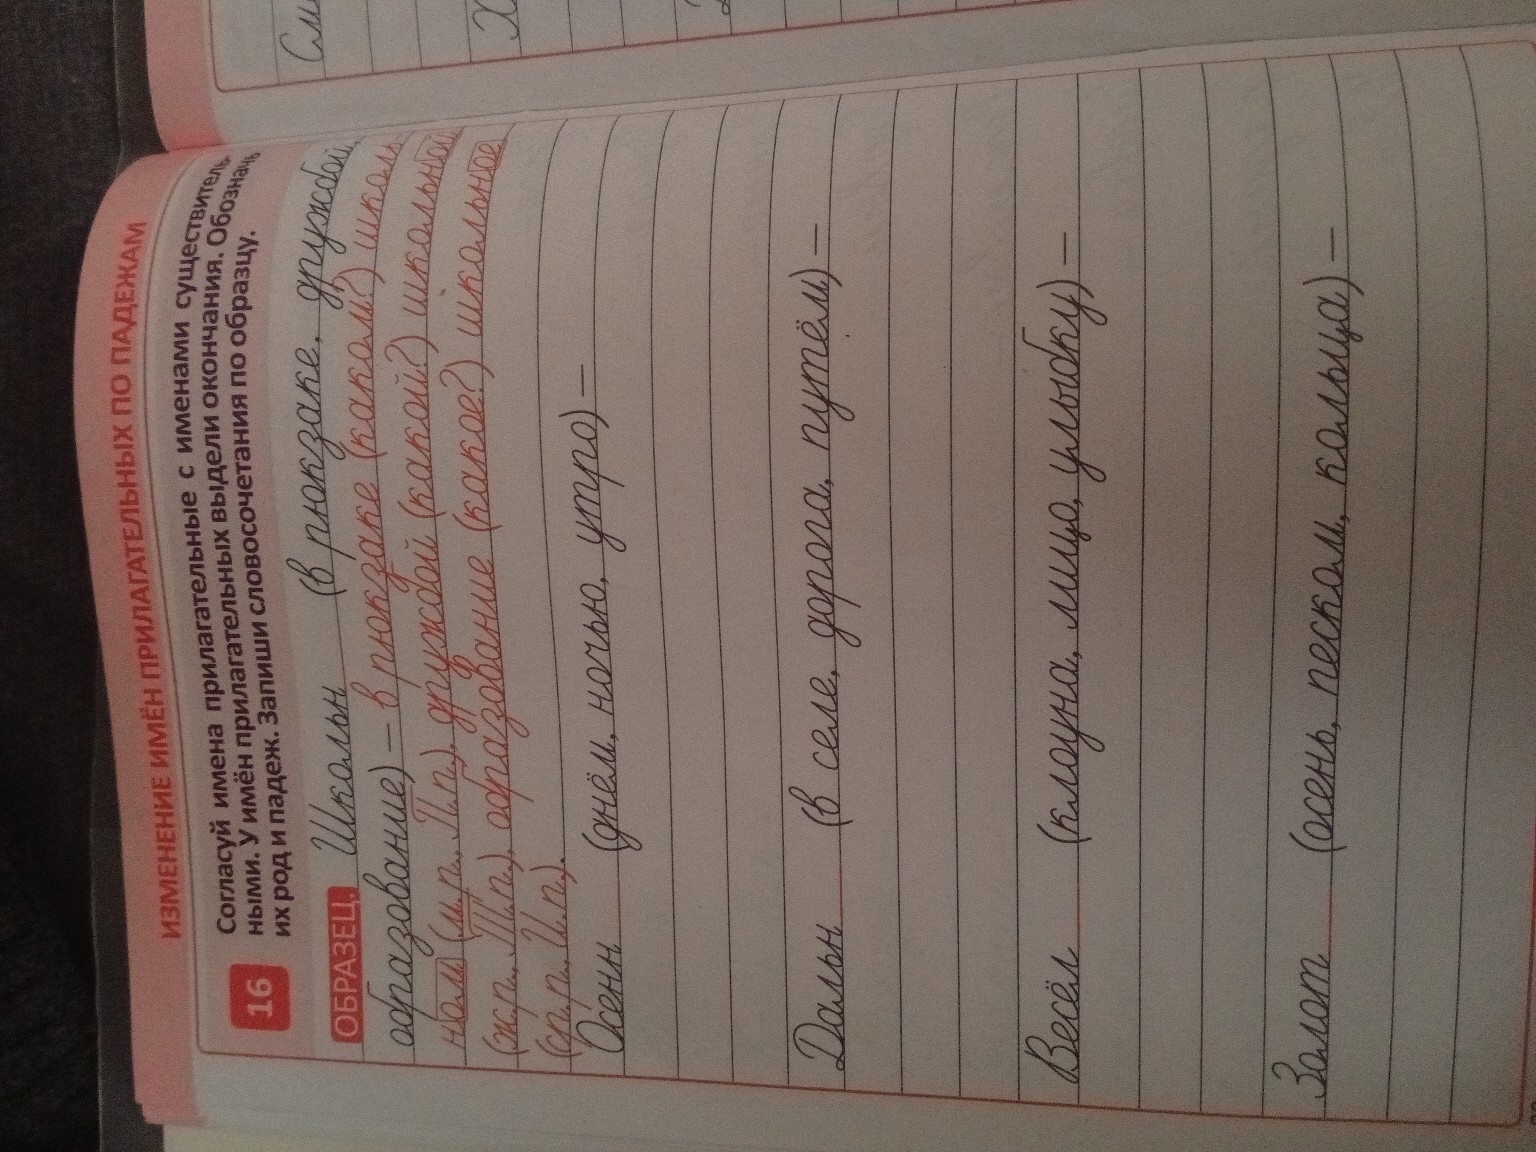 ИЗМЕНЕНИЕ ИМЁН ПРИЛАГАТЕЛЬНЫХ ПО ПАДЕЖАМ
16 Согласуй имена прилагательные с именами существитель-
ными. У имён прилагательных выдели окончания. Обозначь
их род и падеж. Запиши словосочетания по образцу.
ОБРАЗЕЦ. Школьн (в рюкзаке, дружбой,
образование) – в рюкзаке (каком?) школь-
ном (м.р., П.п.), дружбой (какой?) школьной
(ж.р., Т.п.), образование (какое?) школьное
(ср.р., И.п.).
Осенн (днём, ночью, утро) –
Дальн (в селе, дорога, путём) –
Весёл (клоуна, лицо, улыбку) –
Золот (осень, песком, кольца) –